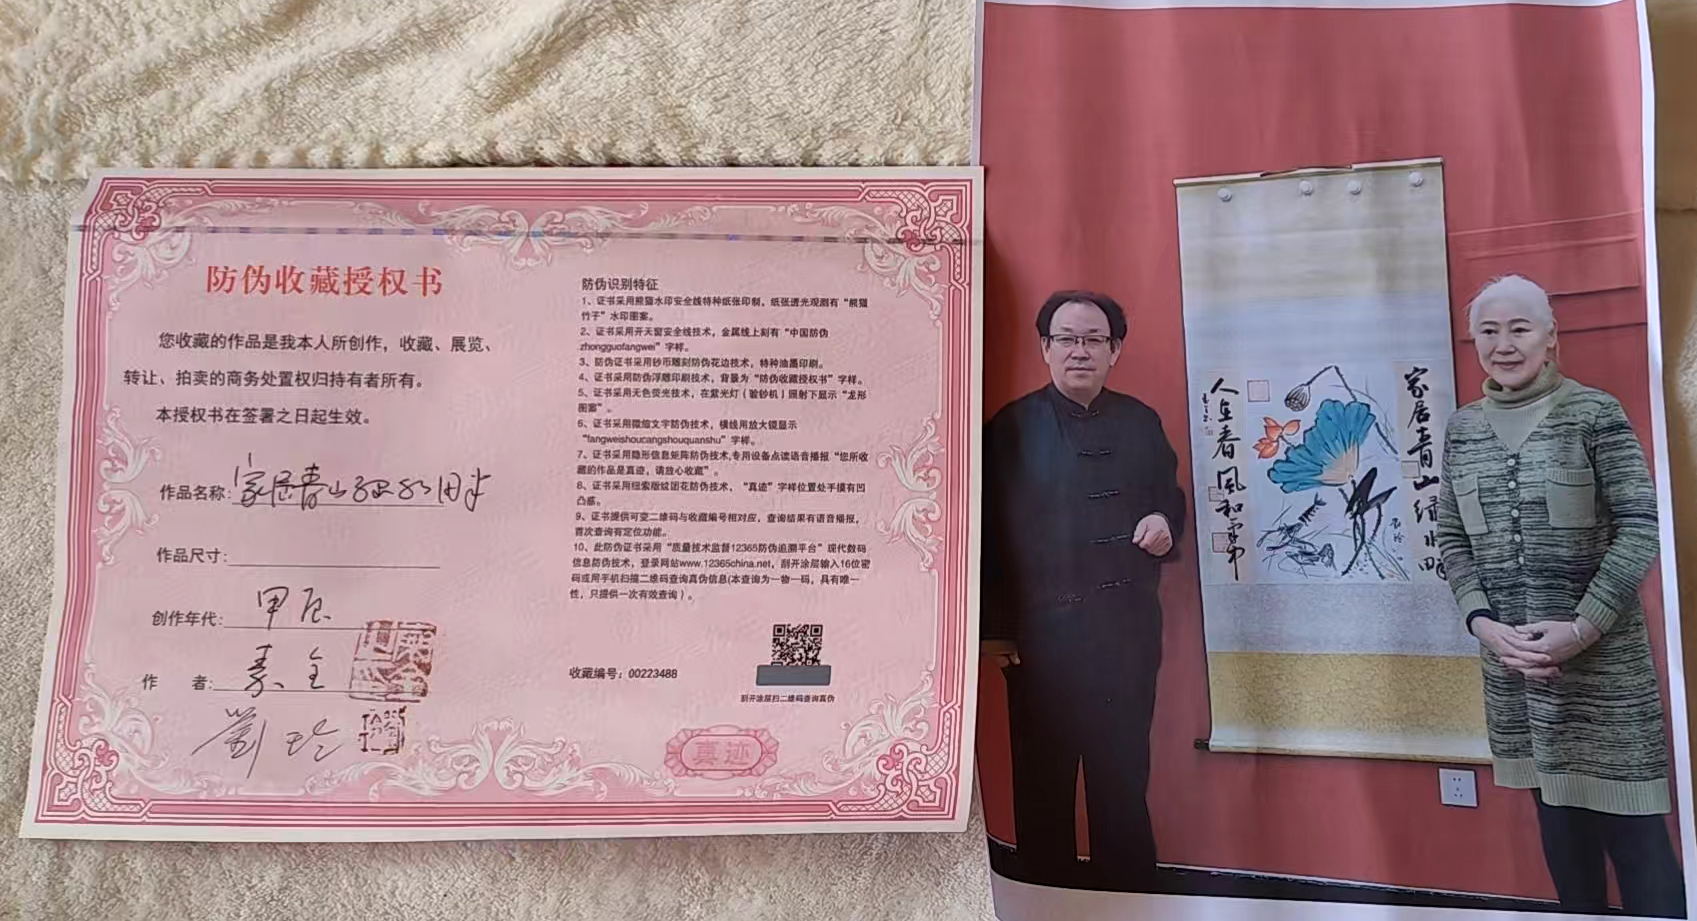 防伪收藏授权书
您收藏的作品是我本人所创作，收藏、展览、
转让、拍卖的商务处置权归持有者所有。
本授权书在签署之日起生效。
作品名称：家居青山绿水畔
作品尺寸：
创作年代：甲辰
作 者：
防伪识别特征
1、证书采用熊猫水印安全线特种纸张印制，纸张透光观测有“熊猫
竹子”水印图案。
2、证书采用开天窗安全线技术，金属线上刻有“中国防伪
zhongguofangwei”字样。
3、防伪证书采用钞币雕刻防伪花边技术，特种油墨印刷。
4、证书采用防伪浮雕印刷技术，背景为“防伪收藏授权书”字样。
5、证书采用无色荧光技术，在紫光灯（验钞机）照射下显示“龙形
图案”。
6、证书采用微缩文字防伪技术，横线用放大镜显示
“fangweishoucangshouquanshu”字样。
7、证书采用隐形信息矩阵防伪技术,专用设备点读语音播报“您所收
藏的作品是真迹，请放心收藏”。
8、证书采用纽索版纹团花防伪技术，“真迹”字样位置处手摸有凹
凸感。
9、证书提供可变二维码与收藏编号相对应，查询结果有语音播报，
首次查询有定位功能。
10、此防伪证书采用“质量技术监督12365防伪追溯平台”现代数码
信息防伪技术，登录网站www.12365china.net，刮开涂层输入16位密
码或用手机扫描二维码查询真伪信息(本查询为一物一码，具有唯一
性，只提供一次有效查询）。
收藏编号：00223488
刮开涂层扫二维码查询真伪
真迹
家居青山绿水畔
人在春风和气中